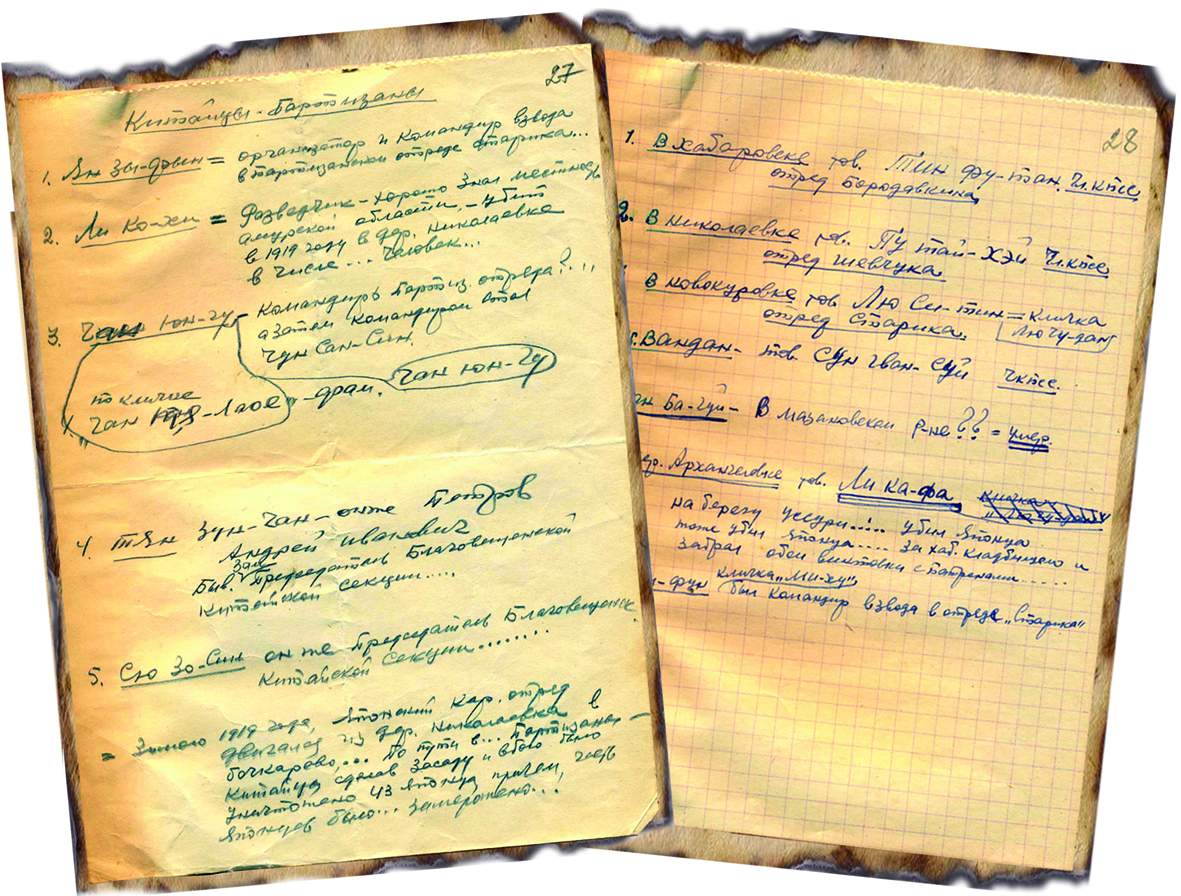 27
Китайцы-Партизаны
1. Ян Зы-фын = организатор и командир взвода
в партизанском отряде Старика...
2. Ли Ко-хи = Разведчик - хорошо знал местность
амурской области, - убит
в 1919 году в дер. Николаевке
в числе ... человек...
3. Чан Юн-чу - командиръ партиз. отряда?...
а затем командиром стал
Чун Сан-Син.
по кличке
"Чан -Лаое" - фам. Чан Юн-Чу
4. Тян Зун-Чан - он же Петров
Андрей Иванович
Был Зам Председатель Благовещенской
Китайской секции....
5. Сю Зо-Син он же Председатель Благовещенск.
Китайской секции.......
= Зимою 1919 года, Японский кар. отряд
двигался из дер. Николаевка в
бочкарево,... По пути в... Партизаны -
Китайцы сделав засаду и было
уничтожено 43 японца, причем, часть
японцев было... заморожено...
28
1. В Хабаровске тов. Тин фу-тан.
отряд Бородавкина
2. В Николаевке тов. Пу тай-хэй
отряд Шевчука
В новокуровке тов Лю Си-тин = кличка
отряд Старика. Лю чу-зан
Вандан - тов. Сун гван-суй
Ба-гуй - В Мазановском р-не?? = умер.
Архангеловке тов. Ли ка-фа
на берегу уссури..... убил японца
тоже убил японца.... за хаб. кладбищею и
забрал обои винтовки с патронами.....
кличка "Ли-ху"
-фун был командир взвода в отряде "Старика"